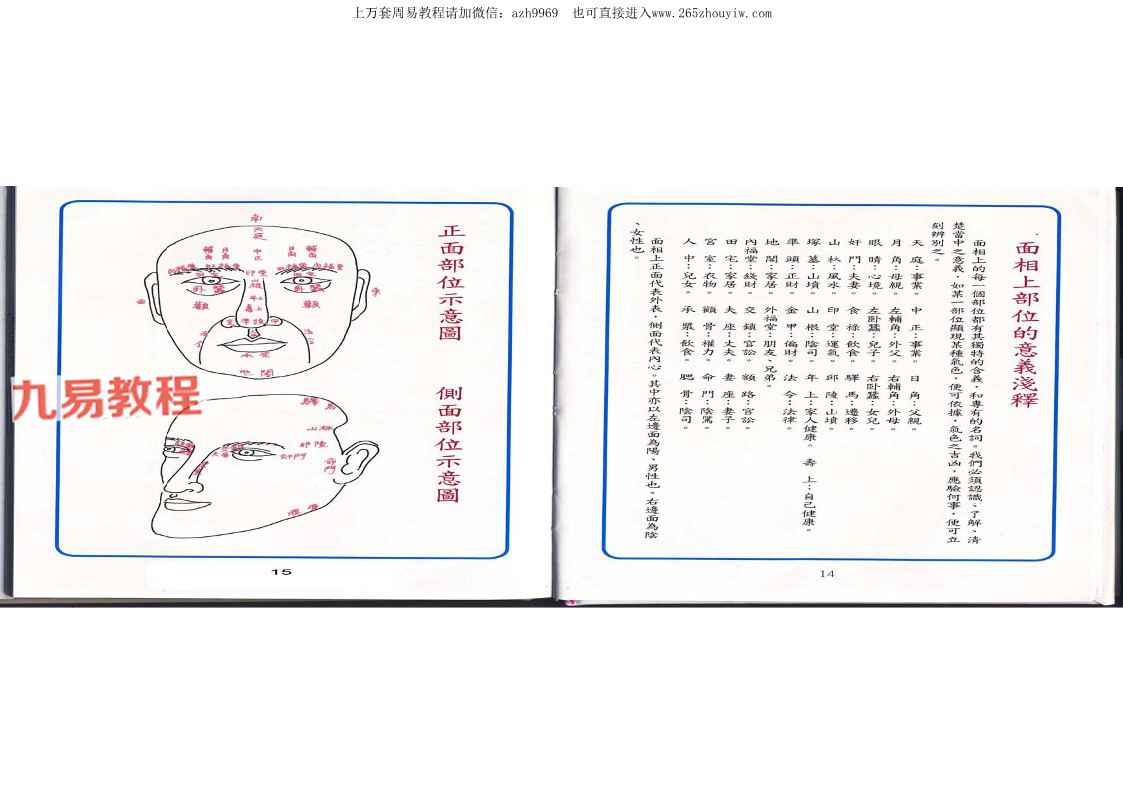 上万套周易教程请加微信：azh9969　也可直接进入www.265zhouyiw.com
面相上部位的意義淺釋
面相上的每一個部位都有其獨特的含義，和專有的名詞。我們必須認識、了解、清
楚當中之意義，如某一部位顯現某種氣色，便可依據，氣色之吉凶，應驗何事，便可立
刻辨別之。
天　庭：事業。　中　正：事業。　日　角：父親。
月　角：母親。　左輔角：外父。　右輔角：外母。
眼　睛：心境。　左卧蠶：兒子。　右卧蠶：女兒。
奸　門：夫妻。　食　祿：飲食。　驛　馬：遷移。
山　林：風水。　印　堂：運氣。　邱　陵：山墳。
塚　墓：山墳。　山　根：陰司。　年　上：家人健康。　壽　上：自己健康。
準　頭：正財。　金　甲：偏財。　法　令：法律。
地　閣：家居。　外福堂：朋友、兄弟。
內福堂：錢財。　交　鎖：官訟。　額　路：官訟。
田　宅：家居。　夫　座：丈夫。　妻　座：妻子。
宮　室：衣物。　顴　骨：權力。　命　門：陰騭。
人　中：兒女。　承　漿：飲食。　腮　骨：陰司。
面相上正面代表外表，側面代表內心。其中亦以左邊面為陽、男性也。右邊面為陰
、女性也。
14
正面部位示意圖
天庭
輔角
日角
中正
月角
輔角
印堂
山根
年上
壽上
準頭
地閣
側面部位示意圖
驛馬
山林
邱陵
奸門
命門
腮骨
15
九易教程